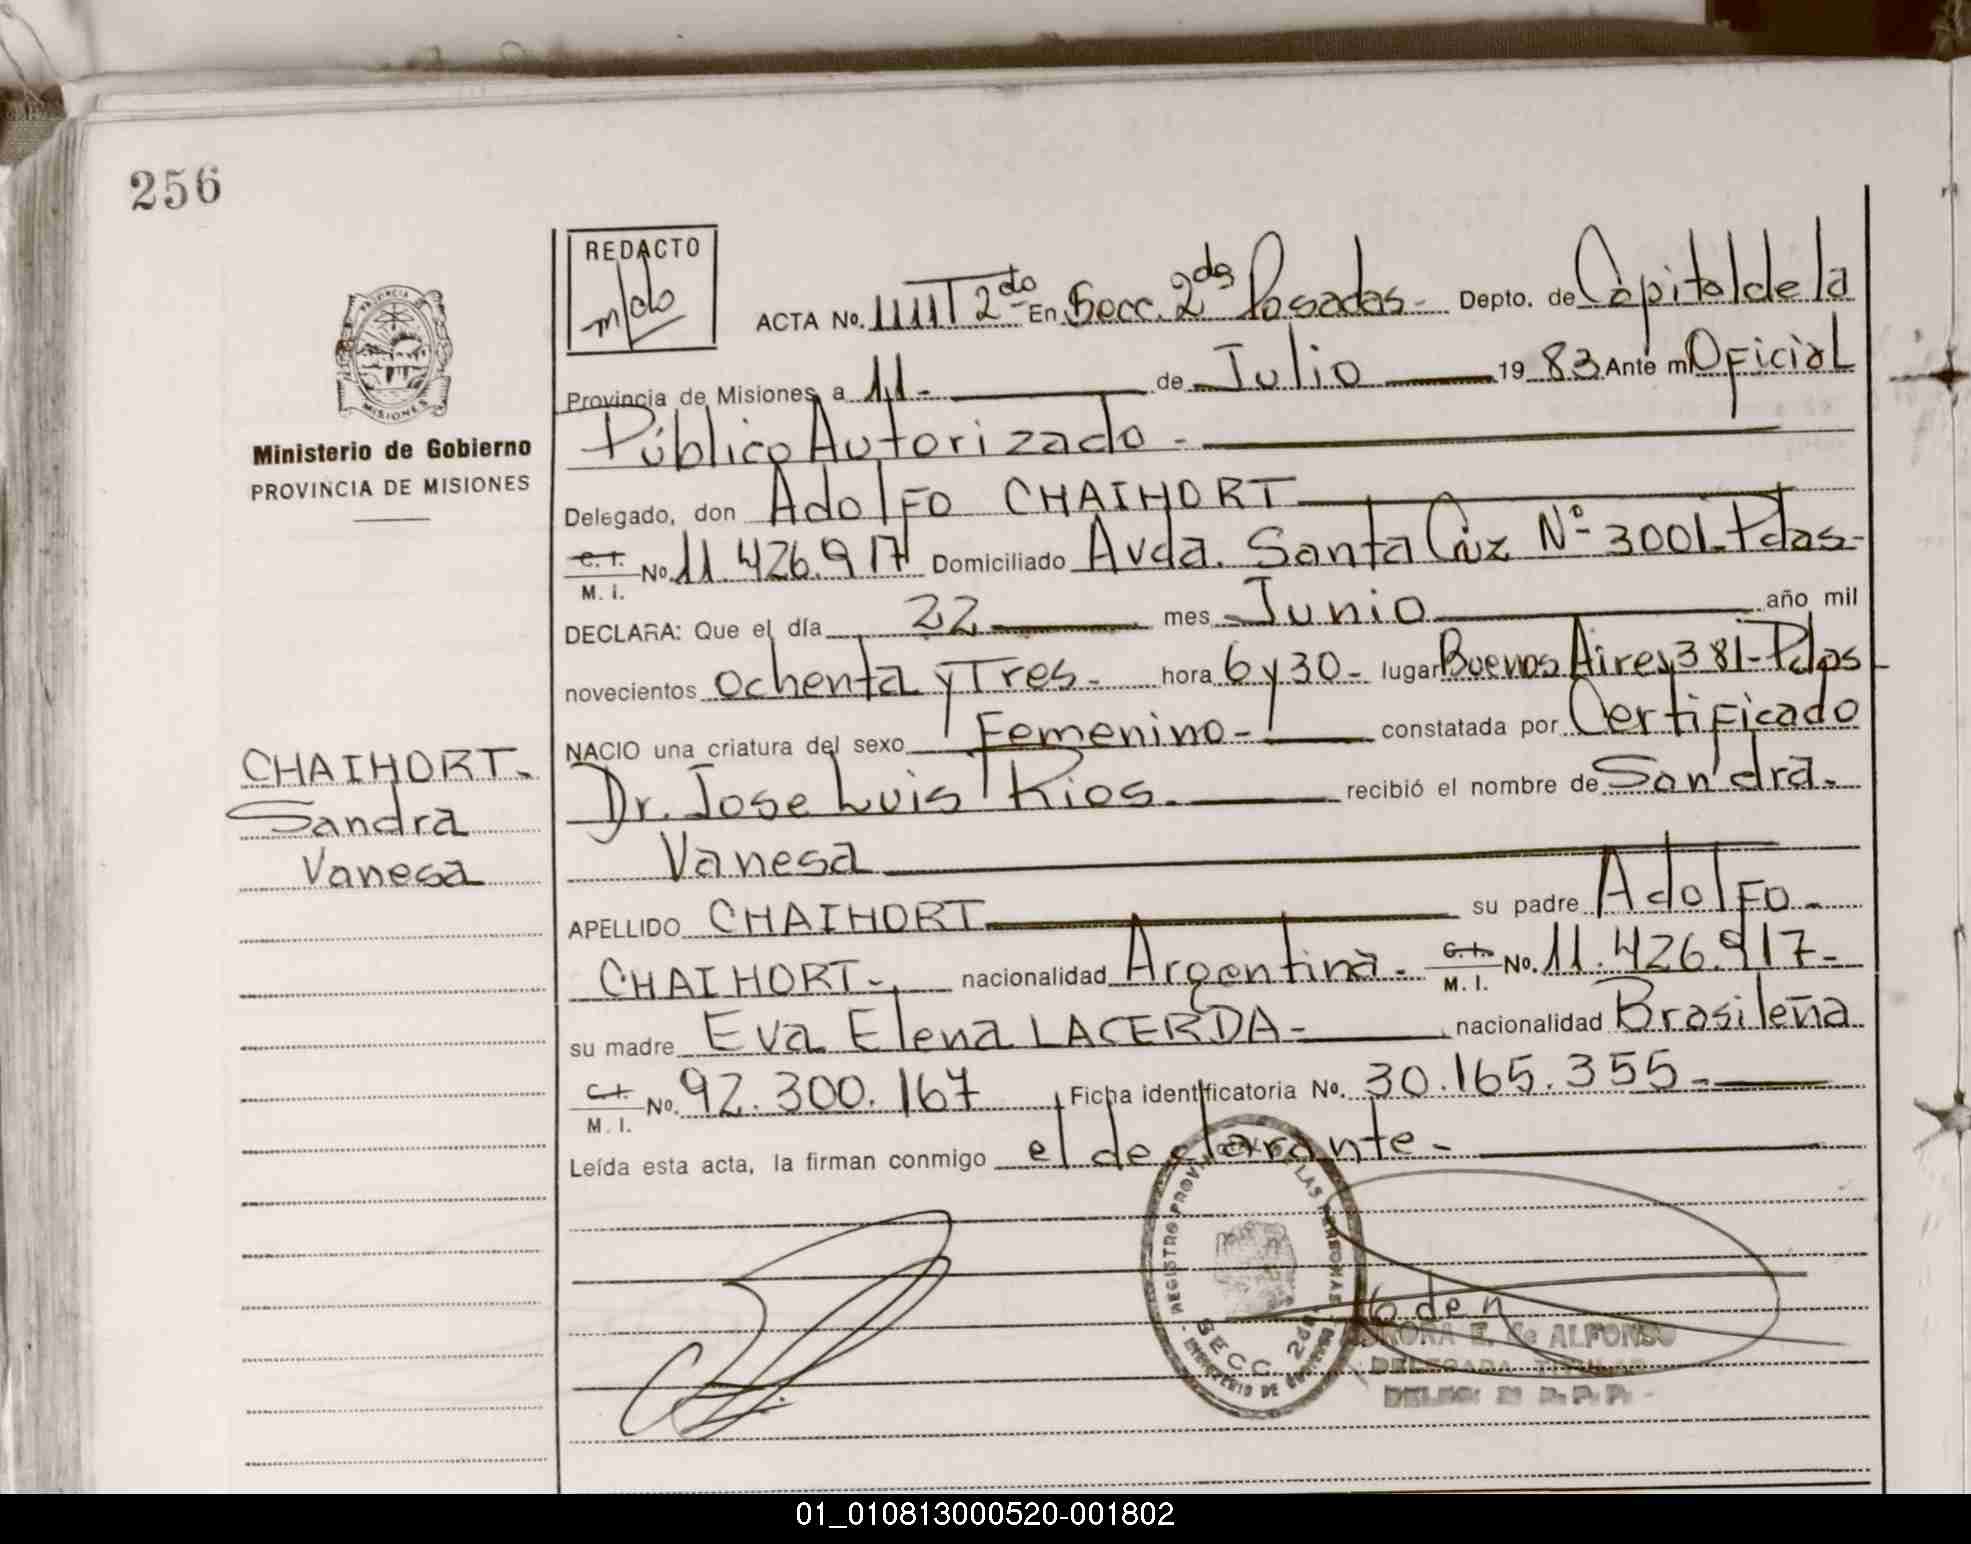 256
REDACTO
m/do
PROVINCIA
MISIONES
Ministerio de Gobierno
PROVINCIA DE MISIONES
ACTA No. 1111 T 2do En Secc. 2da Posadas- Depto. de Capital de la
Provincia de Misiones, a 11- de Julio 1983 Ante mi Oficial
Público Autorizado-
Delegado, don Adolfo CHAIHORT
C. I. M. I. No. 11.426.917 Domiciliado Avda. Santa Cruz Nº 3001-Pdas-
DECLARA: Que el día 22 mes Junio año mil
novecientos ochenta y Tres- hora 6 y 30- lugar Buenos Aires 381-Pdas
NACIO una criatura del sexo Femenino- constatada por Certificado
Dr. Jose Luis Rios- recibió el nombre de Sandra-
Vanesa
CHAIHORT-
Sandra
Vanesa
APELLIDO CHAIHORT su padre Adolfo-
CHAIHORT- nacionalidad Argentina- C. I. M. I. No. 11.426.917-
su madre Eva Elena LACERDA- nacionalidad Brasileña
C. I. M. I. No. 92.300.167 Ficha identificatoria No. 30.165.355-
Leída esta acta, la firman conmigo el declarante-
REGISTRO PROVINCIAL DE LAS PERSONAS
SECC. 2da
MINISTERIO DE GOBIERNO
E. de ALFONSO
DELEGADA TITULAR
01_010813000520-001802